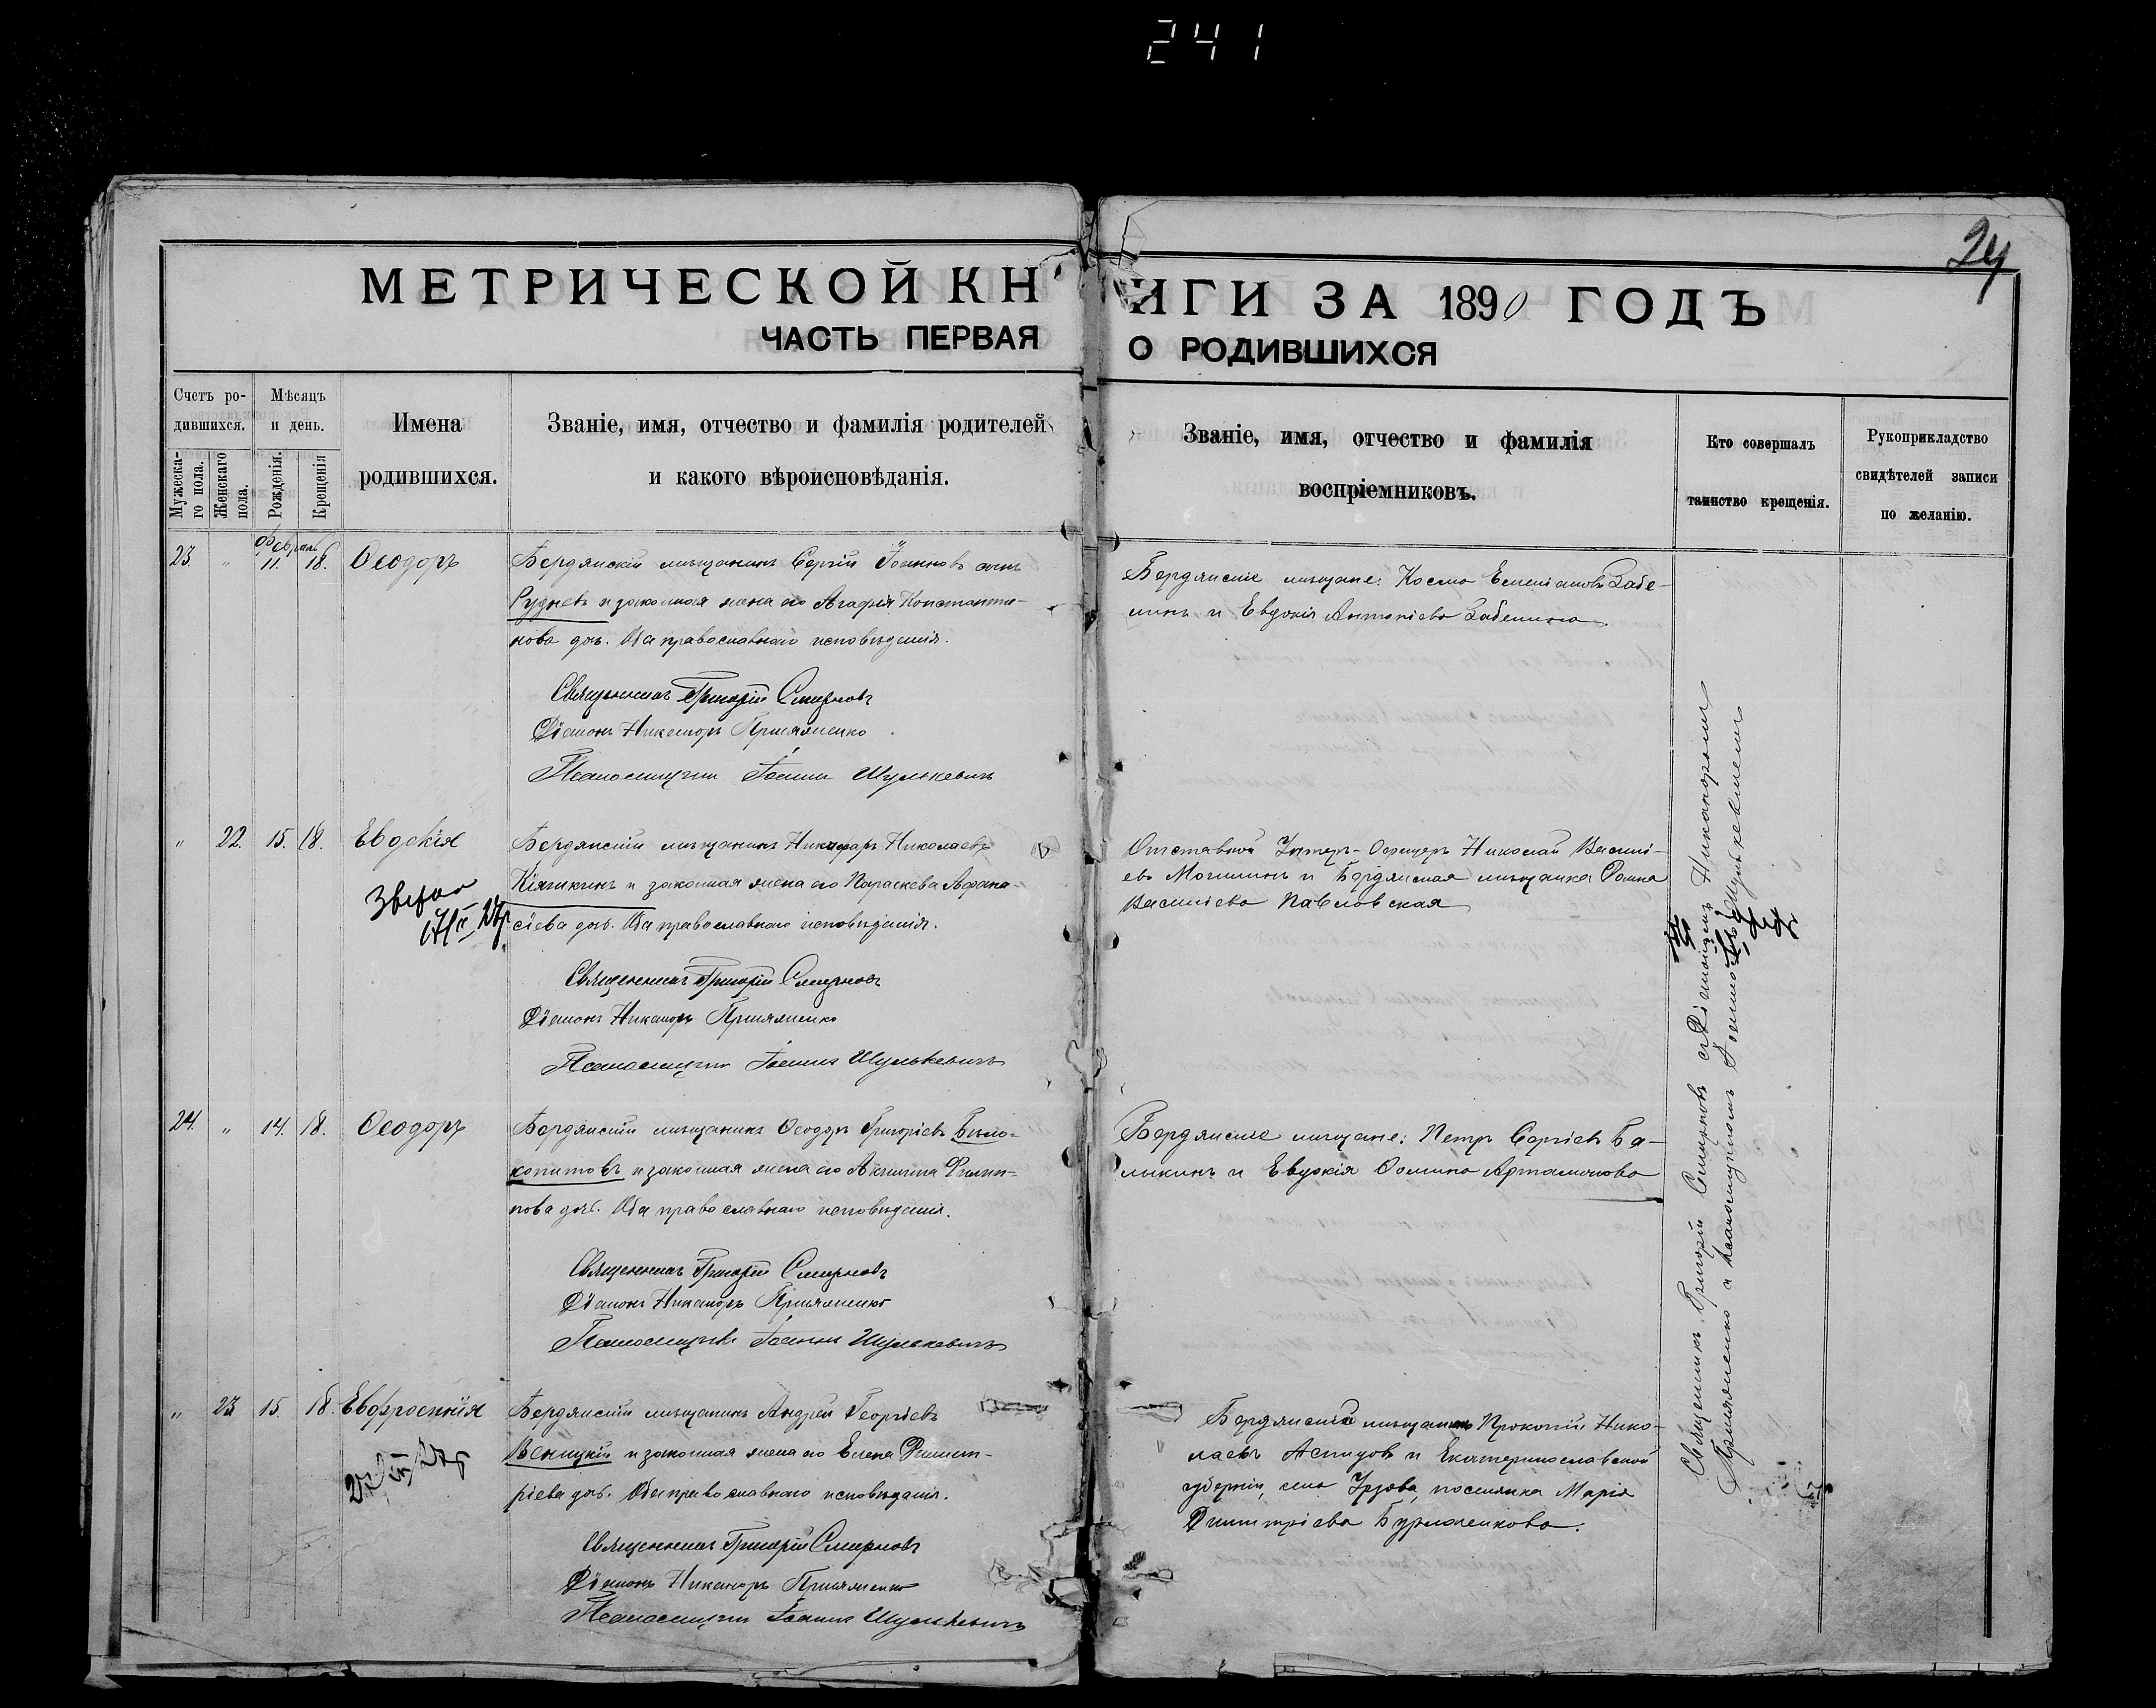 241
24
МЕТРИЧЕСКОЙ КНИГИ ЗА 1890 ГОДЪ
ЧАСТЬ ПЕРВАЯ О РОДИВШИХСЯ
Счетъ ро-
дившихся.
Мужеска-
го пола.
Женскаго
пола.
Мѣсяцъ
и день.
Рожденія.
Крещенія
Имена
родившихся.
Званіе, имя, отчество и фамилія родителей
и какого вѣроисповѣданія.
Званіе, имя, отчество и фамилія
воспріемниковъ.
Кто совершалъ
таинство крещенія.
Рукоприкладство
свидѣтелей записи
по желанію.
Февраль
23. " 11. 18. Ѳеодоръ
Бердянскій мѣщанинъ Сергій Іоанновъ сынъ
Рудневъ и законная жена его Агафія Константи-
нова дочь. Оба православнаго исповѣданія.
Священникъ Григорій Смирновъ
Діаконъ Никаноръ
Псаломщикъ Іоаннъ Шулькевичъ
Бердянскіе мѣщане: Косма Емеліановъ Забе-
линъ и Евдокія Антоніева Забелина.
" 22. 15. 18. Евдокія
Бердянскій мѣщанинъ Никифоръ Николаевъ
и законная жена его Параскева Афана-
сіева дочь. Оба православнаго исповѣданія.
Священникъ Григорій Смирновъ
Діаконъ Никаноръ
Псаломщикъ Іоаннъ Шулькевичъ
Отставной Унтеръ-Офицеръ Николай Василі-
евъ и Бердянская мѣщанка
Василіева Павловская
24. " 14. 18. Ѳеодоръ
Бердянскій мѣщанинъ Ѳеодоръ Григоріевъ Бѣло-
копытовъ и законная жена его Акилина Филип-
пова дочь. Оба православнаго исповѣданія.
Священникъ Григорій Смирновъ
Діаконъ Никаноръ
Псаломщикъ Іоаннъ Шулькевичъ
Бердянскіе мѣщане: Петръ Сергіевъ Ба-
лыкинъ и Евдокія Ѳомина Артамонова
" 23 15. 18. Евфросинія
Бердянскій мѣщанинъ Андрей Георгіевъ
Веницкій и законная жена его Елена Димит-
ріева дочь. Оба православнаго исповѣданія.
Священникъ Григорій Смирновъ
Діаконъ Никаноръ
Псаломщикъ Іоаннъ Шулькевичъ
Бердянскій мѣщанинъ Прокопій Нико-
лаевъ Аспидовъ и Екатеринославской
губерніи, села поселянка Марія
Димитріева
Священникъ Григорій Смирновъ съ Діакономъ Никаноромъ
и псаломщикомъ Іоанномъ Шулькевичемъ